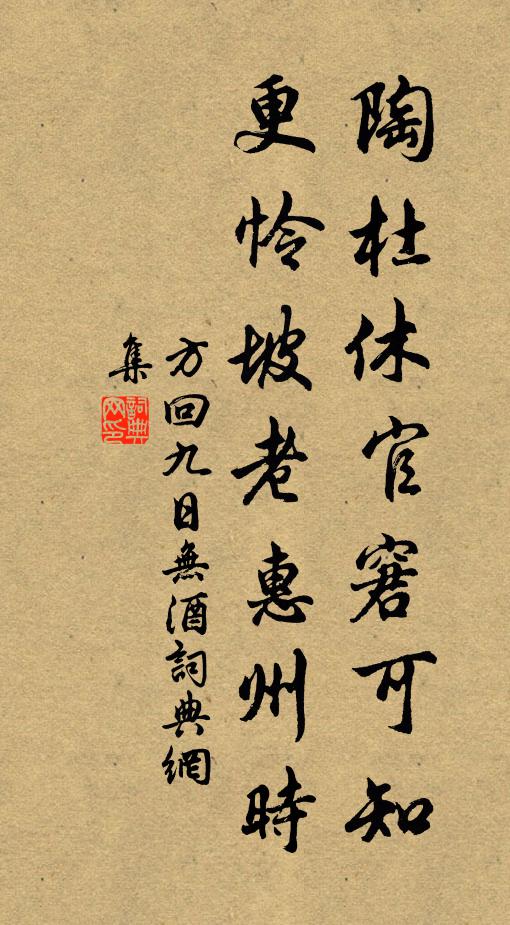 陶杜休官窘可知
更怜坡老惠州時
方回九日無酒詞典網
集
詞典
网印